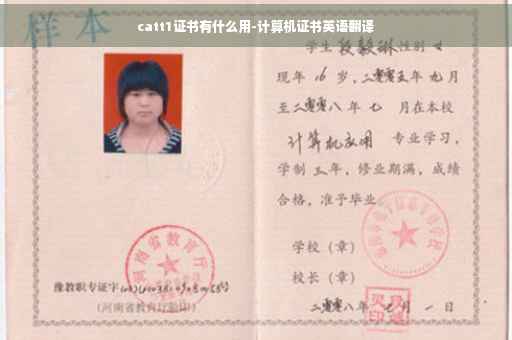 catti证书有什么用-计算机证书英语翻译
样本
学生 段毅琳 性别 女
现年 16 岁,二零零五年 九 月
至二零零八年 七 月在本校
计算机应用 专业学习,
学制 三 年,修业期满,成绩
合格,准予毕业
学校(章)
校长(章)
二零零八年 七 月 一 日
河南省教育厅
豫教职专证字
(河南省教育厅验印)